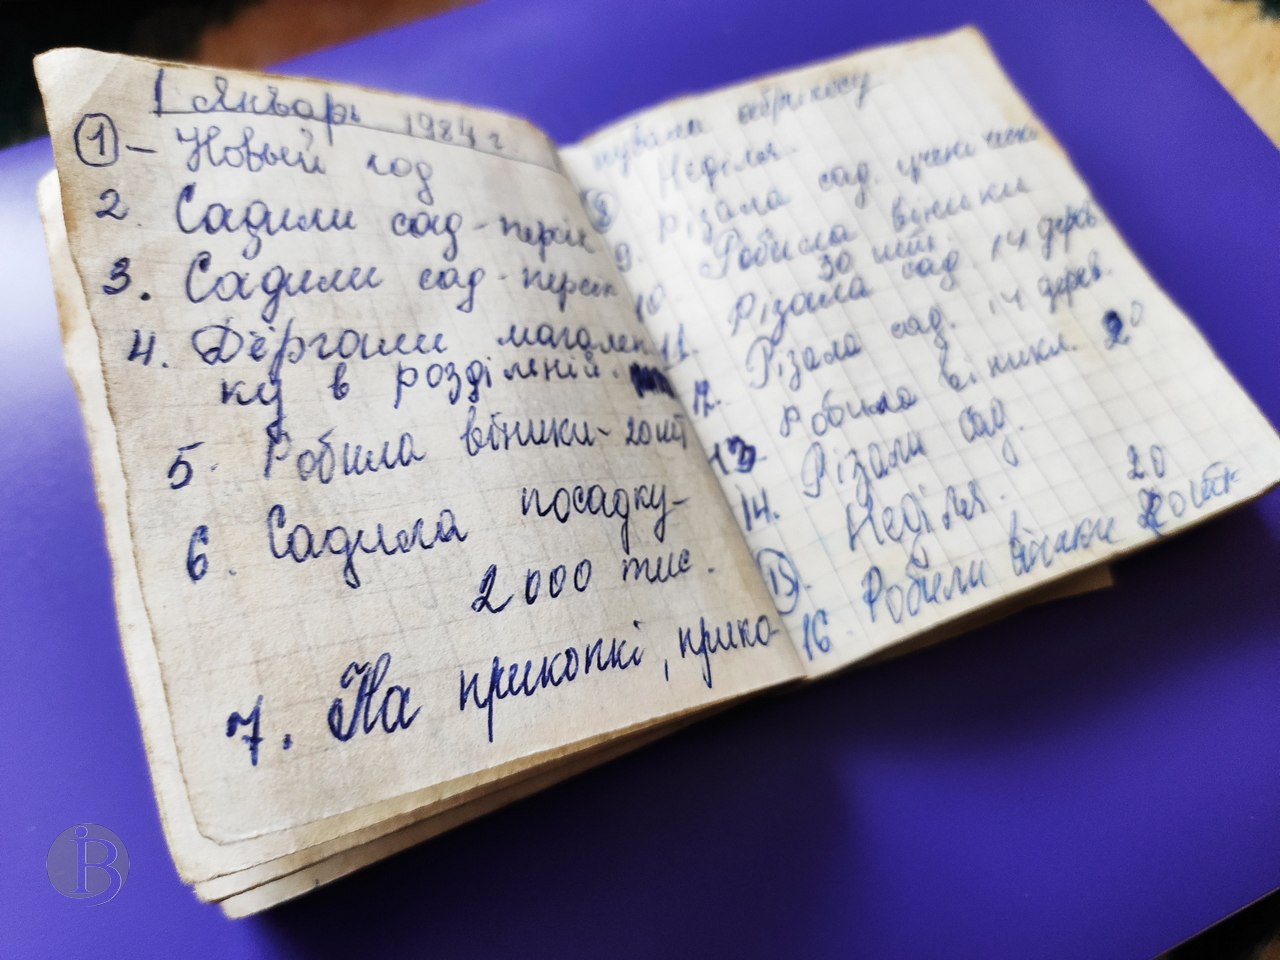 1 Янъварь 1984 г.
1 – Новый год
2 Садили сад - персік
3. Садили сад - персік
4. Дёргали магален
ку в розділеній.
5. Робила віники - 20 шт
6. Садила посадку -
2000 тис.
7. На прикопкі, прико-
пувала
8 Неділя.
9. різала сад.
10. Робила віники
30 шт.
11. Різала сад. 14 дерев
12. Різала сад. 14 дерев.
13 робила віники. 20
14. Різали сад.
15. Неділя.
20
16. Робили віники 20 штк
iB